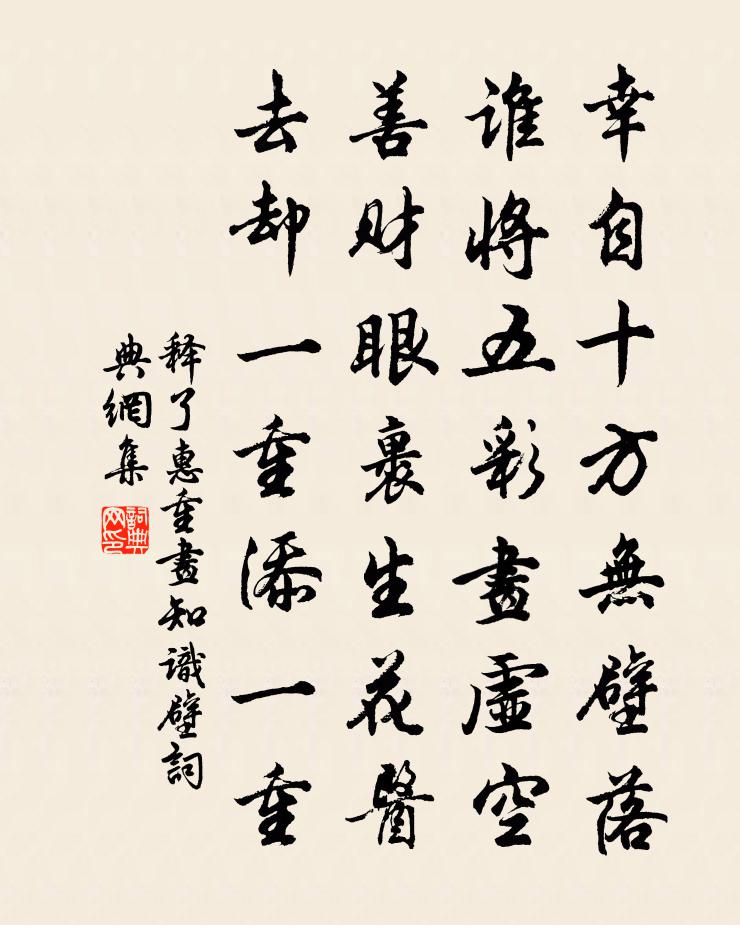 幸自十方無壁落
誰將五彩畫虛空
善財眼裹生花醫
去却一重添一重
释了惠重畫知識壁詞
典網集
詞典
网印